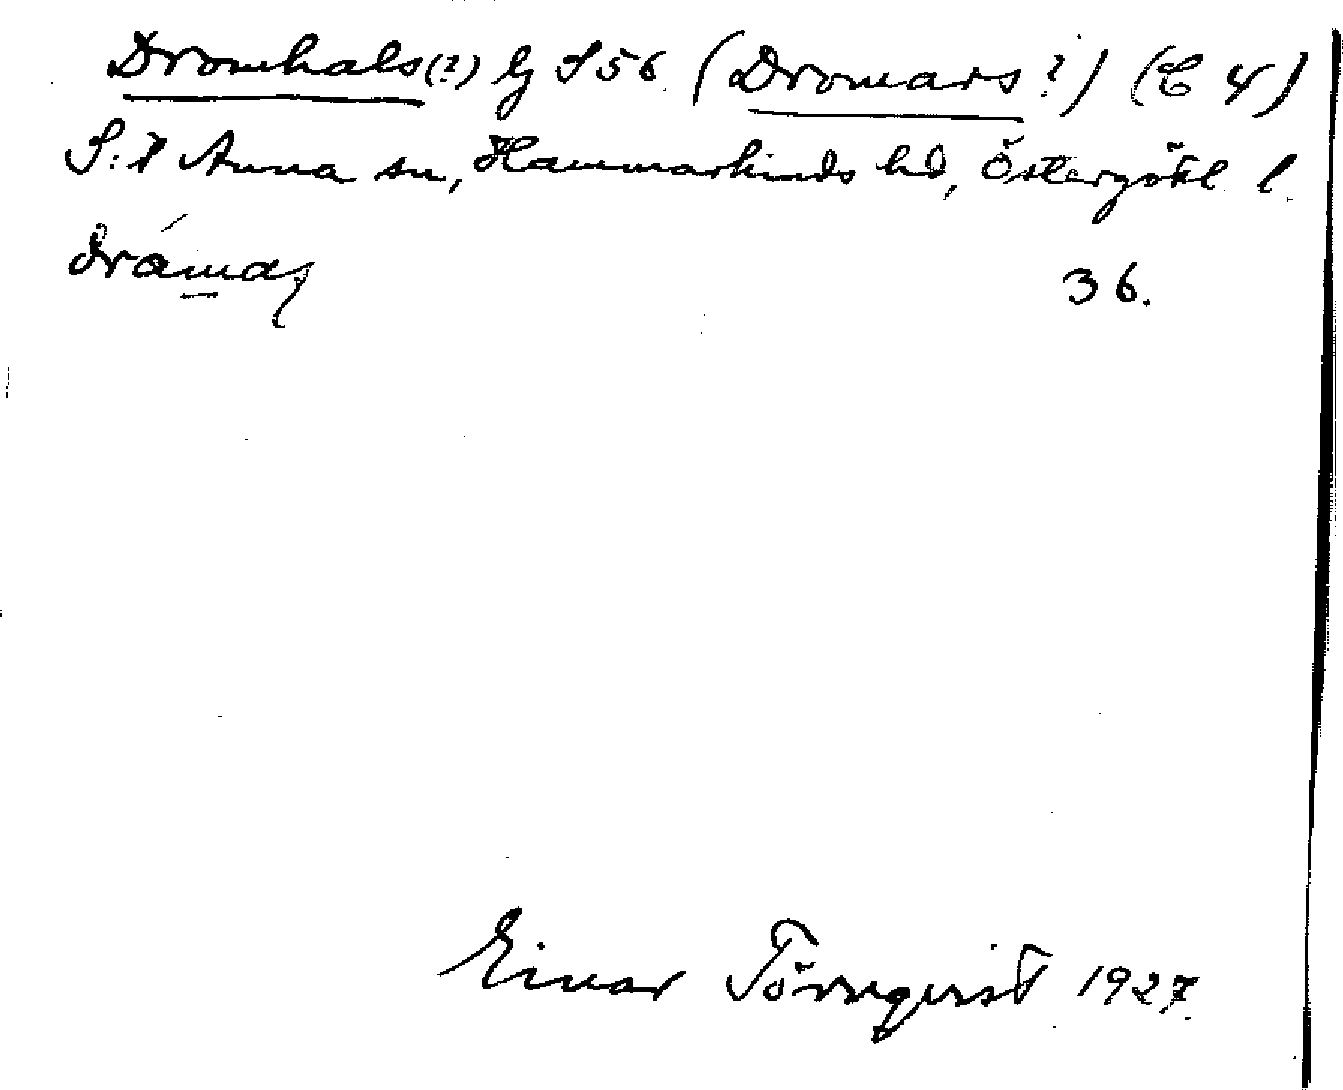 Dromhals (?) lg S 56 (Dromars ?) (C 4)
S:t Anna sn, Hammarkinds hd, Östergötl l.
dråmaʂ
36.
Einar Törnqvist 1927